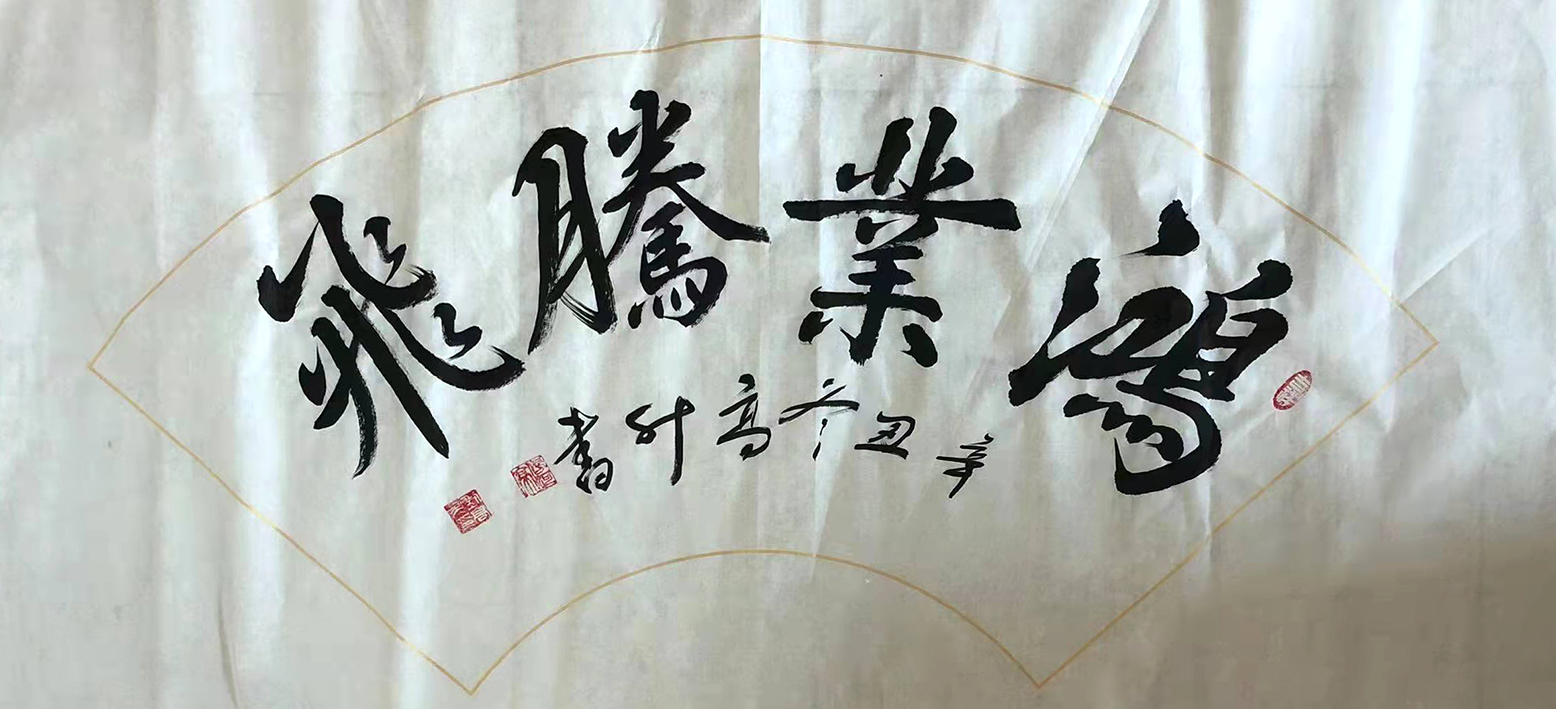 鴻業騰飛
辛丑冬高升書